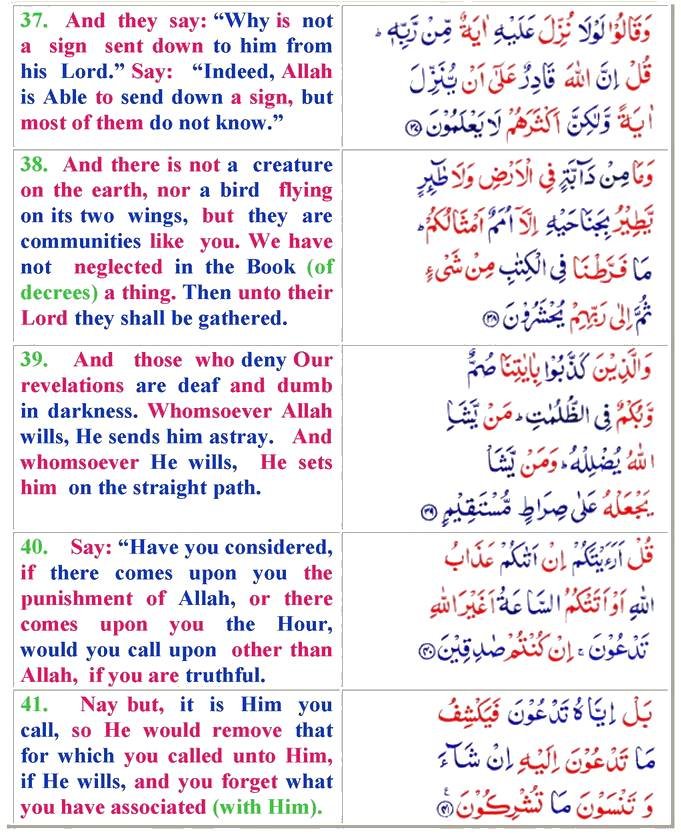 37. And they say: “Why is not
a sign sent down to him from
his Lord.” Say: “Indeed, Allah
is Able to send down a sign, but
most of them do not know.”
وَقَالُوْا لَوْلَا نُزِّلَ عَلَيْهِ اٰيَةٌ مِّنْ رَّبِّهٖ ؕ
قُلْ اِنَّ اللّٰهَ قَادِرٌ عَلٰٓى اَنْ يُّنَزِّلَ
اٰيَةً وَّلٰكِنَّ اَكْثَرَهُمْ لَا يَعْلَمُوْنَ ﴿۳۷﴾
38. And there is not a creature
on the earth, nor a bird flying
on its two wings, but they are
communities like you. We have
not neglected in the Book (of
decrees) a thing. Then unto their
Lord they shall be gathered.
وَمَا مِنْ دَآبَّةٍ فِي الْاَرْضِ وَلَا طٰٓئِرٍ
يَّطِيْرُ بِجَنَاحَيْهِ اِلَّاۤ اُمَمٌ اَمْثَالُكُمْ ؕ
مَا فَرَّطْنَا فِي الْكِتٰبِ مِنْ شَيْءٍ
ثُمَّ اِلٰى رَبِّهِمْ يُحْشَرُوْنَ ﴿۳۸﴾
39. And those who deny Our
revelations are deaf and dumb
in darkness. Whomsoever Allah
wills, He sends him astray. And
whomsoever He wills, He sets
him on the straight path.
وَالَّذِيْنَ كَذَّبُوْا بِاٰيٰتِنَا صُمٌّ
وَّبُكْمٌ فِي الظُّلُمٰتِ ؕ مَنْ يَّشَاِ
اللّٰهُ يُضْلِلْهُ ؕ وَمَنْ يَّشَاْ
يَجْعَلْهُ عَلٰى صِرَاطٍ مُّسْتَقِيْمٍ ﴿۳۹﴾
40. Say: “Have you considered,
if there comes upon you the
punishment of Allah, or there
comes upon you the Hour,
would you call upon other than
Allah, if you are truthful.
قُلْ اَرَءَيْتَكُمْ اِنْ اَتٰىكُمْ عَذَابُ
اللّٰهِ اَوْ اَتَتْكُمُ السَّاعَةُ اَغَيْرَ اللّٰهِ
تَدْعُوْنَ ۚ اِنْ كُنْتُمْ صٰدِقِيْنَ ﴿۴۰﴾
41. Nay but, it is Him you
call, so He would remove that
for which you called unto Him,
if He wills, and you forget what
you have associated (with Him).
بَلْ اِيَّاهُ تَدْعُوْنَ فَيَكْشِفُ
مَا تَدْعُوْنَ اِلَيْهِ اِنْ شَآءَ
وَ تَنْسَوْنَ مَا تُشْرِكُوْنَ ﴿۴۱﴾